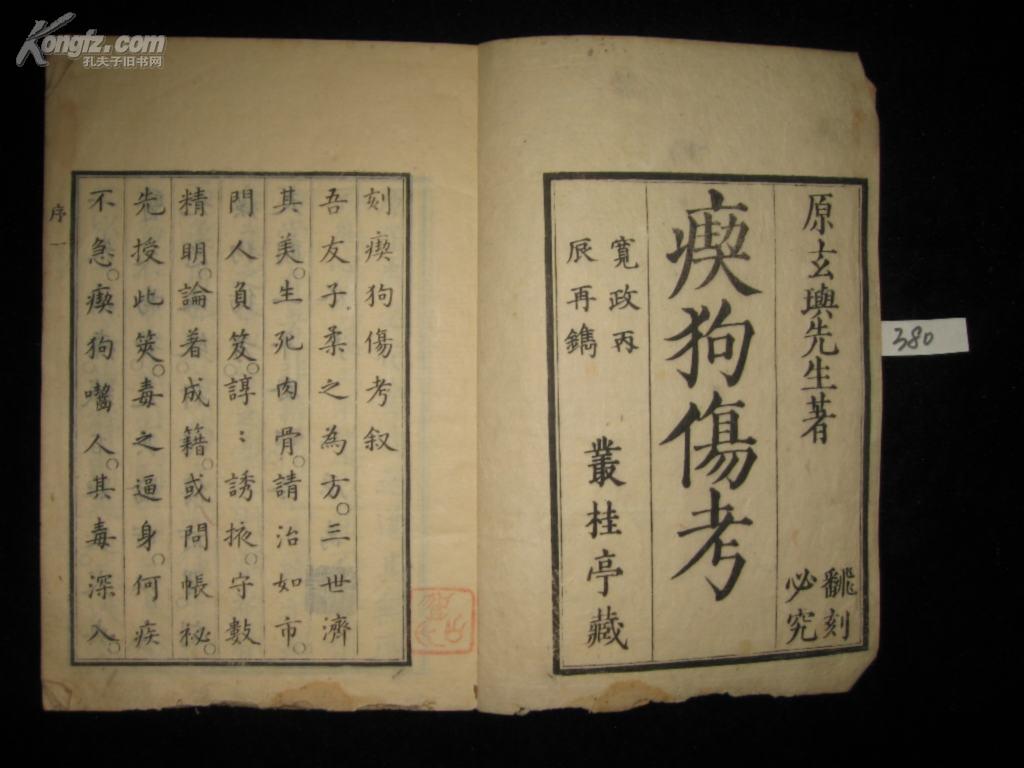 Kongfz.com
孔夫子旧书网
原玄璵先生著
飜刻
必究
瘈狗傷考
寬政丙
辰再鐫
叢桂亭藏
380
刻瘈狗傷考叙
吾友子柔之為方。三世濟
其美。生死肉骨。請治如市。
門人負笈。諄〻誘掖。守數
精明。論著成籍。或問帳秘。
先授此筴。毒之逼身。何疾
不急。瘈狗囓人。其毒深入。
序 一